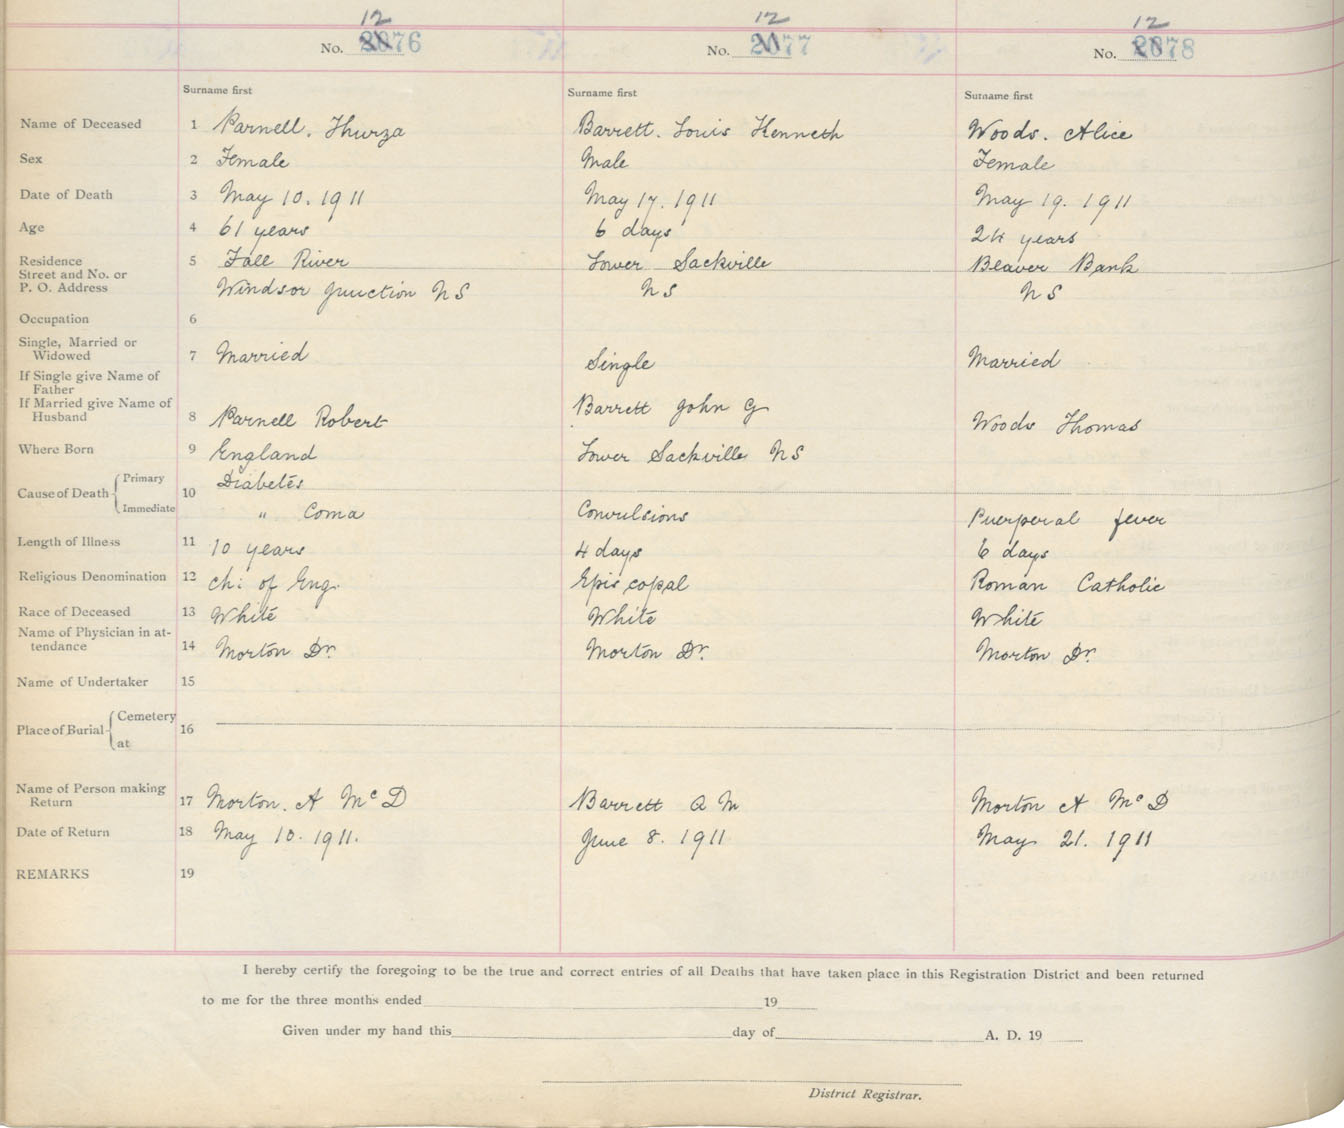 12 12 12
No. 2076 No. 2077 No. 2078
Surname first Surname first Surname first
Name of Deceased 1 Parnell. Thurza Barrett. Louis Kenneth Woods. Alice
Sex 2 Female Male Female
Date of Death 3 May 10. 1911 May 17. 1911 May 19. 1911
Age 4 61 years 6 days 24 years
Residence 5 Fall River Lower Sackville Beaver Bank
Street and No. or
P. O. Address Windsor Junction N S N S N S
Occupation 6
Single, Married or
Widowed 7 Married Single Married
If Single give Name of
Father
If Married give Name of Barrett John G
Husband 8 Parnell Robert Woods Thomas
Where Born 9 England Lower Sackville N S
Cause of Death Primary 10 Diabetes
Immediate " Coma Convulsions Puerperal fever
Length of Illness 11 10 years 4 days 6 days
Religious Denomination 12 Ch: of Eng. Episcopal Roman Catholic
Race of Deceased 13 White White White
Name of Physician in at-
tendance 14 Morton Dr. Morton Dr. Morton Dr.
Name of Undertaker 15
Place of Burial Cemetery 16
at
Name of Person making
Return 17 Morton. A McD Barrett A M Morton A McD
Date of Return 18 May 10. 1911. June 8. 1911 May 21. 1911
REMARKS 19
I hereby certify the foregoing to be the true and correct entries of all Deaths that have taken place in this Registration District and been returned
to me for the three months ended 19
Given under my hand this day of A. D. 19
District Registrar.